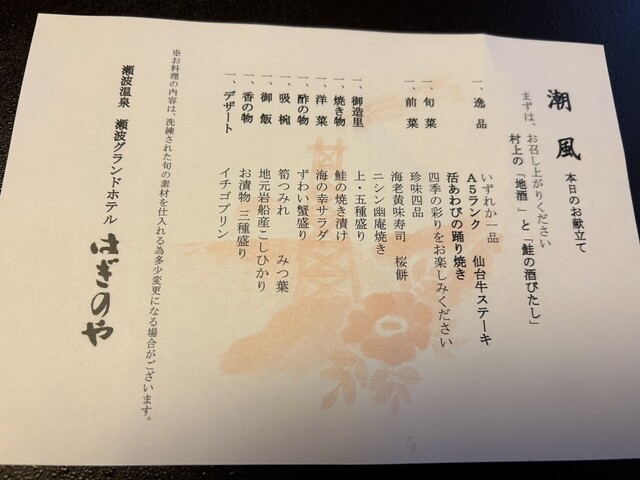 潮風 本日のお献立て
まずは、お召し上がりください
村上の「地酒」と「鮭の酒びたし」
一、逸品 いずれか一品
A5ランク 仙台牛ステーキ
活あわびの踊り焼き
一、旬菜 四季の彩りをお楽しみください
珍味四品
一、前菜 海老黄味寿司 桜餅
ニシン幽庵焼き
一、御造里 上・五種盛り
一、焼き物 鮭の焼き漬け
一、洋菜 海の幸サラダ
一、酢の物 ずわい蟹盛り
一、吸椀 筍つみれ みつ葉
一、御飯 地元岩船産こしひかり
一、香の物 お漬物 三種盛り
一、デザート イチゴプリン
※お料理の内容は、洗練された旬の素材を仕入れる為多少変更になる場合がございます。
瀬波温泉 瀬波グランドホテル はぎのや